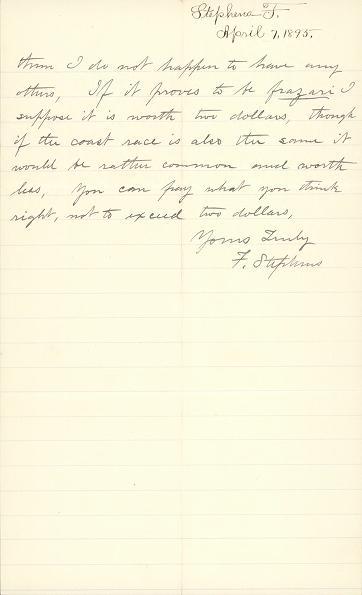 Stephens F.
April 7, 1895.
them I do not happen to have any
others, If it proves to be frazari I
suppose it is worth two dollars, though
if the coast race is also the same it
would be rather common and worth
less, You can pay what you think
right, not to exceed two dollars,
Yours Truly
F. Stephens